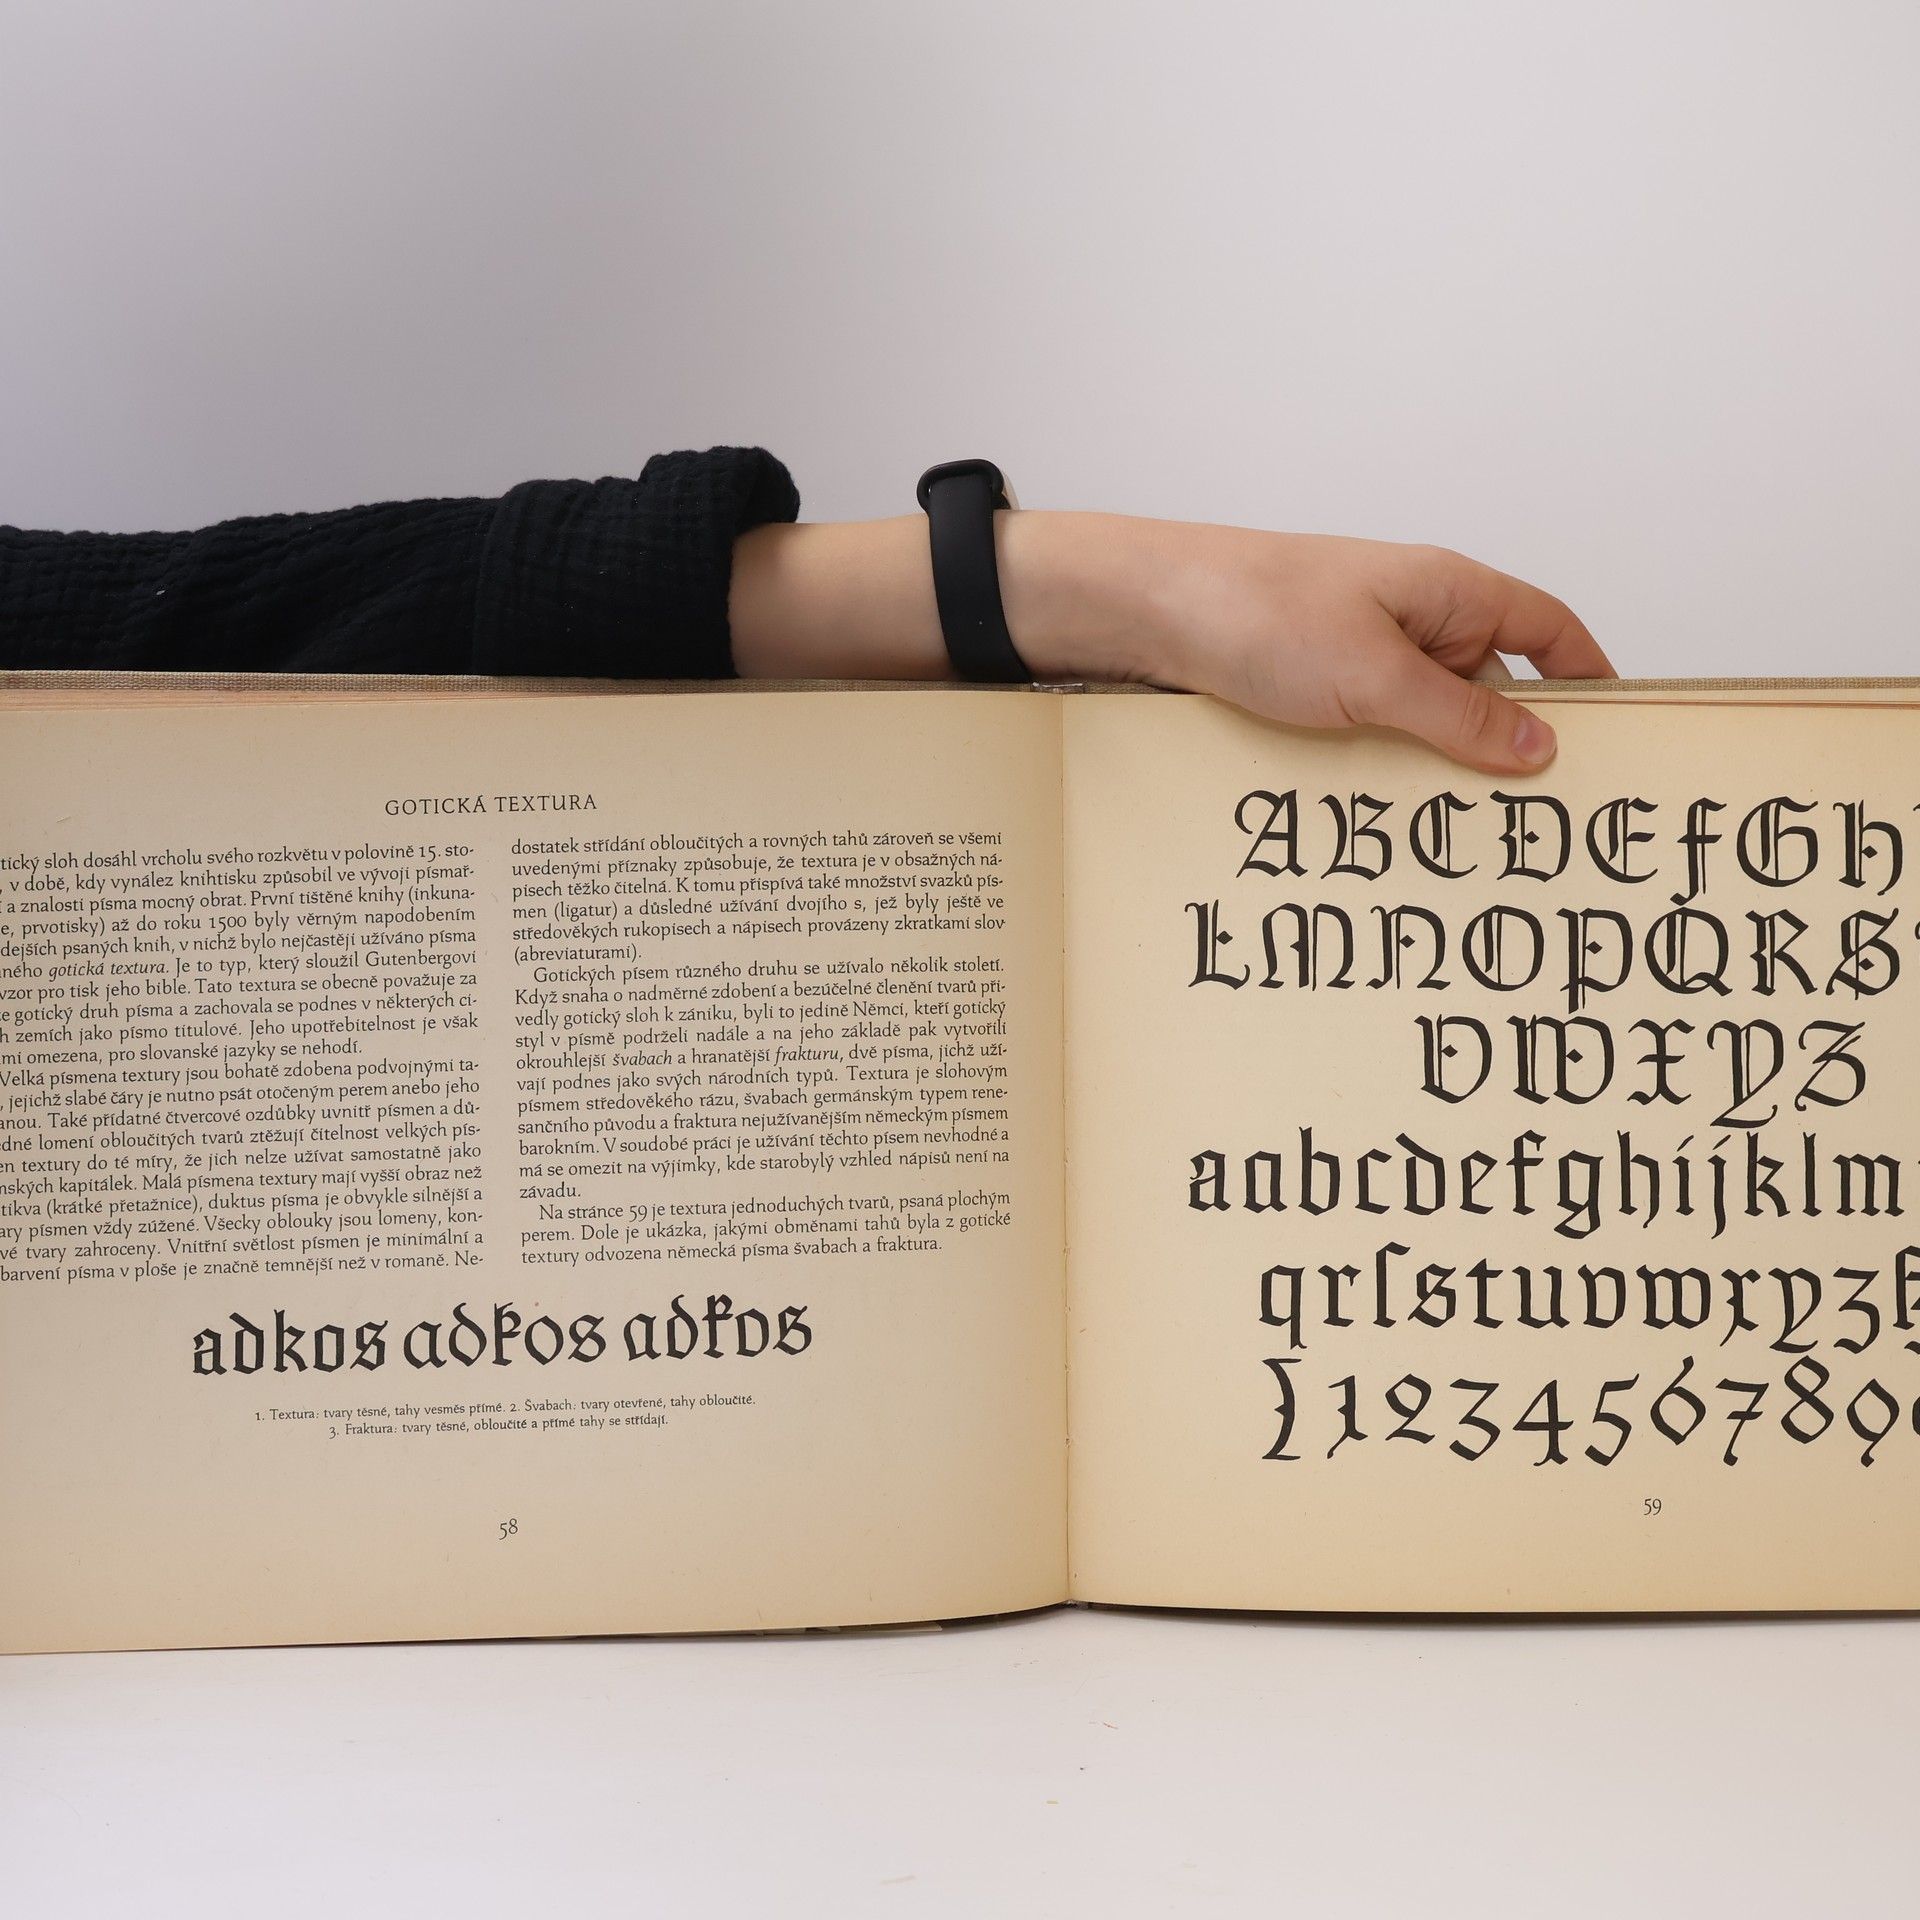 GOTICKÁ TEXTURA
tický sloh dosáhl vrcholu svého rozkvětu v polovině 15. sto-
, v době, kdy vynález knihtisku způsobil ve vývoji písmař-
í a znalosti písma mocný obrat. První tištěné knihy (inkuna-
e, prvotisky) až do roku 1500 byly věrným napodobením
dejších psaných knih, v nichž bylo nejčastěji užíváno písma
ného gotická textura. Je to typ, který sloužil Gutenbergovi
vzor pro tisk jeho bible. Tato textura se obecně považuje za
ze gotický druh písma a zachovala se podnes v některých ci-
h zemích jako písmo titulové. Jeho upotřebitelnost je však
mi omezena, pro slovanské jazyky se nehodí.
Velká písmena textury jsou bohatě zdobena podvojnými ta-
, jejichž slabé čáry je nutno psát otočeným perem anebo jeho
anou. Také přídatné čtvercové ozdůbky uvnitř písmen a dů-
edné lomení obloučitých tvarů ztěžují čitelnost velkých pís-
en textury do té míry, že jich nelze užívat samostatně jako
nských kapitálek. Malá písmena textury mají vyšší obraz než
tikva (krátké přetažnice), duktus písma je obvykle silnější a
ary písmen vždy zúžené. Všecky oblouky jsou lomeny, kon-
vé tvary zahroceny. Vnitřní světlost písmen je minimální a
barvení písma v ploše je značně temnější než v romaně. Ne-
dostatek střídání obloučitých a rovných tahů zároveň se všemi
uvedenými příznaky způsobuje, že textura je v obsažných ná-
pisech těžko čitelná. K tomu přispívá také množství svazků pís-
men (ligatur) a důsledné užívání dvojího s, jež byly ještě ve
středověkých rukopisech a nápisech provázeny zkratkami slov
(abreviaturami).
Gotických písem různého druhu se užívalo několik století.
Když snaha o nadměrné zdobení a bezúčelné členění tvarů při-
vedly gotický sloh k zániku, byli to jedině Němci, kteří gotický
styl v písmě podrželi nadále a na jeho základě pak vytvořili
okrouhlejší švabach a hranatější frakturu, dvě písma, jichž uží-
vají podnes jako svých národních typů. Textura je slohovým
písmem středověkého rázu, švabach germánským typem rene-
sančního původu a fraktura nejužívanějším německým písmem
barokním. V soudobé práci je užívání těchto písem nevhodné a
má se omezit na výjimky, kde starobylý vzhled nápisů není na
závadu.
Na stránce 59 je textura jednoduchých tvarů, psaná plochým
perem. Dole je ukázka, jakými obměnami tahů byla z gotické
textury odvozena německá písma švabach a fraktura.
adkos adkos adkos
1. Textura: tvary těsné, tahy vesměs přímé. 2. Švabach: tvary otevřené, tahy obloučité.
3. Fraktura: tvary těsné, obloučité a přímé tahy se střídají.
58
ABCDEFGH
LMNOPQRS
VWXYZ
aabcdefghijklm
qrſstuvwxyz
1234567890
59